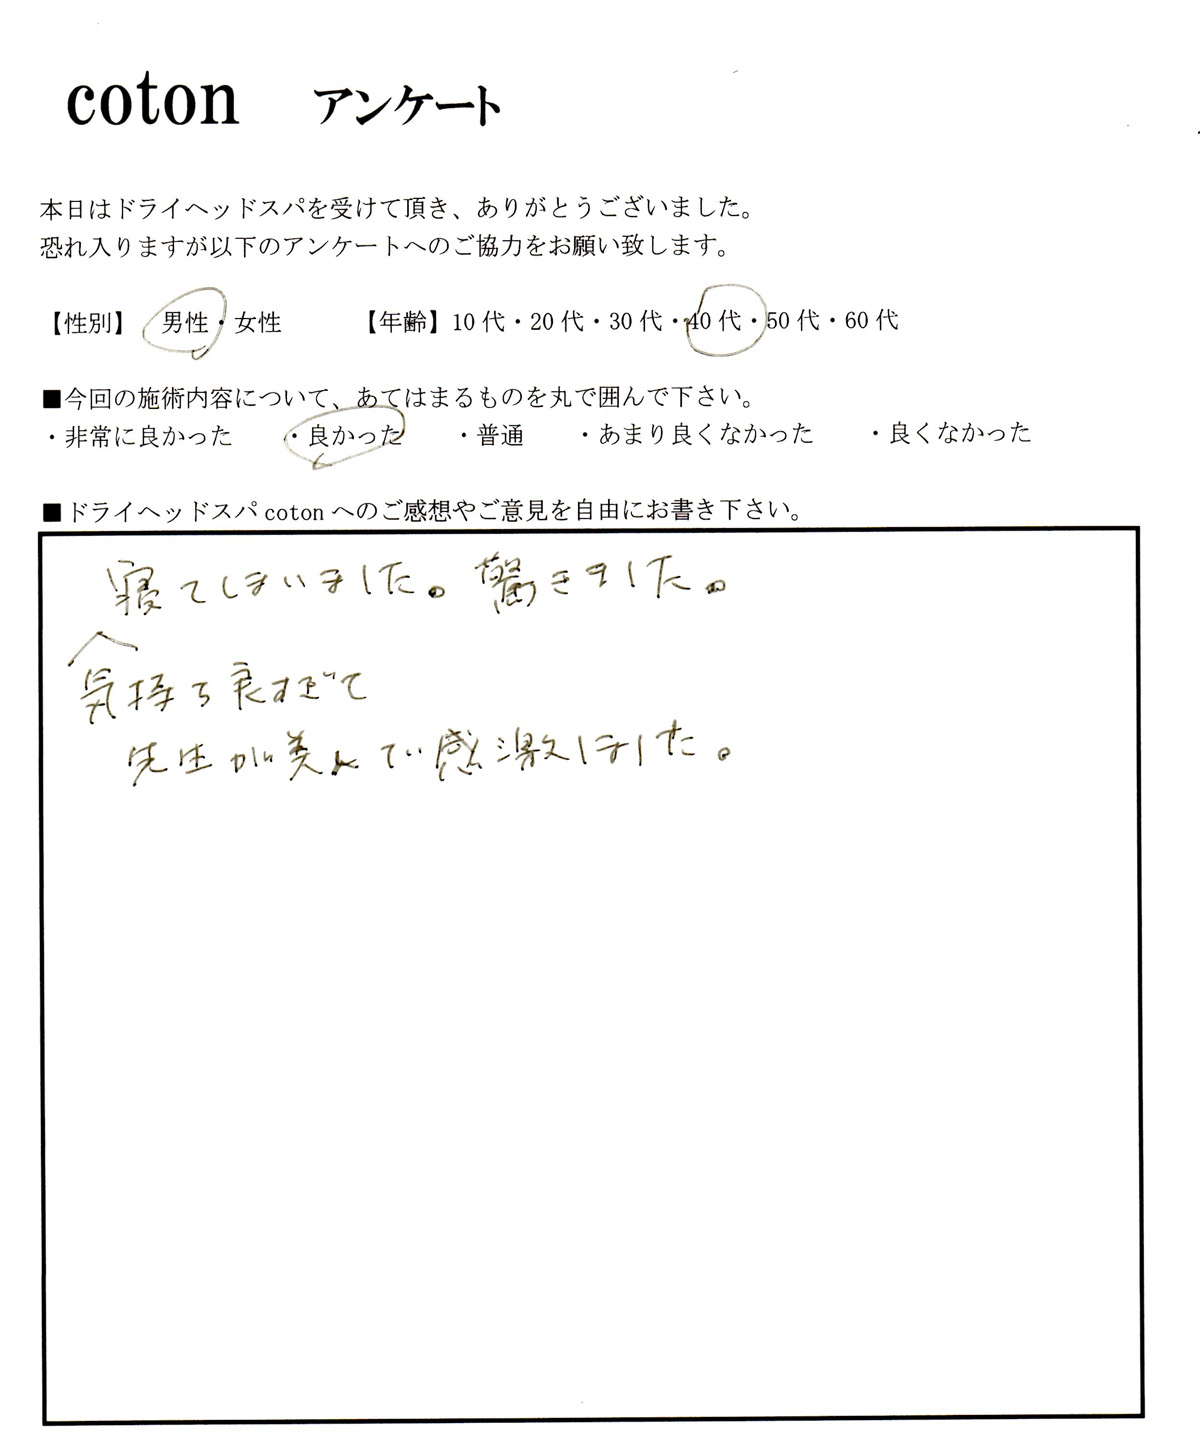 coton アンケート
本日はドライヘッドスパを受けて頂き、ありがとうございました。
恐れ入りますが以下のアンケートへのご協力をお願い致します。
【性別】 男性・女性 【年齢】10代・20代・30代・40代・50代・60代
■今回の施術内容について、あてはまるものを丸で囲んで下さい。
・非常に良かった ・良かった ・普通 ・あまり良くなかった ・良くなかった
■ドライヘッドスパ coton へのご感想やご意見を自由にお書き下さい。
寝てしまいました。驚きました。
気持ち良すぎて
先生が美人で感激しました。